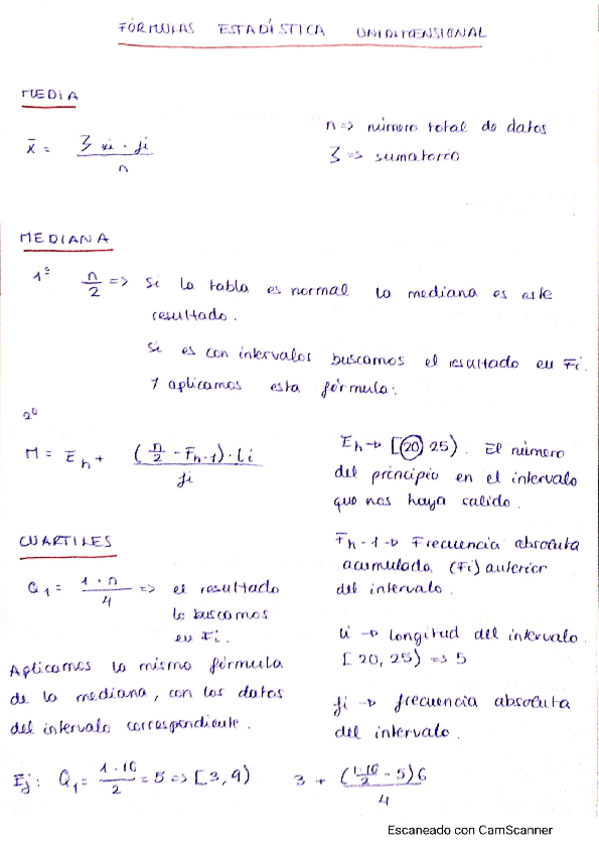 FÓRMULAS ESTADÍSTICA UNIDIMENSIONAL
MEDIA
x̄ = 3 xi · fi / n
n => número total de datos
3 => sumatorio
MEDIANA
1º n/2 => Si la tabla es normal la mediana es este
resultado.
Si es con intervalos buscamos el resultado en Fi.
Y aplicamos esta fórmula:
2º
M = Eh + (n/2 - Fh-1) · li / fi
Eh → [20, 25). El número
del principio en el intervalo
que nos haya salido.
CUARTILES
Fh-1 → Frecuencia absoluta
acumulada (Fi) anterior
del intervalo.
Q1 = 1 · n / 4 => el resultado
lo buscamos
en Fi.
li → longitud del intervalo.
[20, 25) => 5
Aplicamos la misma fórmula
de la mediana, con los datos
del intervalo correspondiente.
fi → frecuencia absoluta
del intervalo.
Ej: Q1 = 1 · 10 / 2 = 5 => [3, 9) 3 + (1·10/2 - 5) 6 / 4
Escaneado con CamScanner